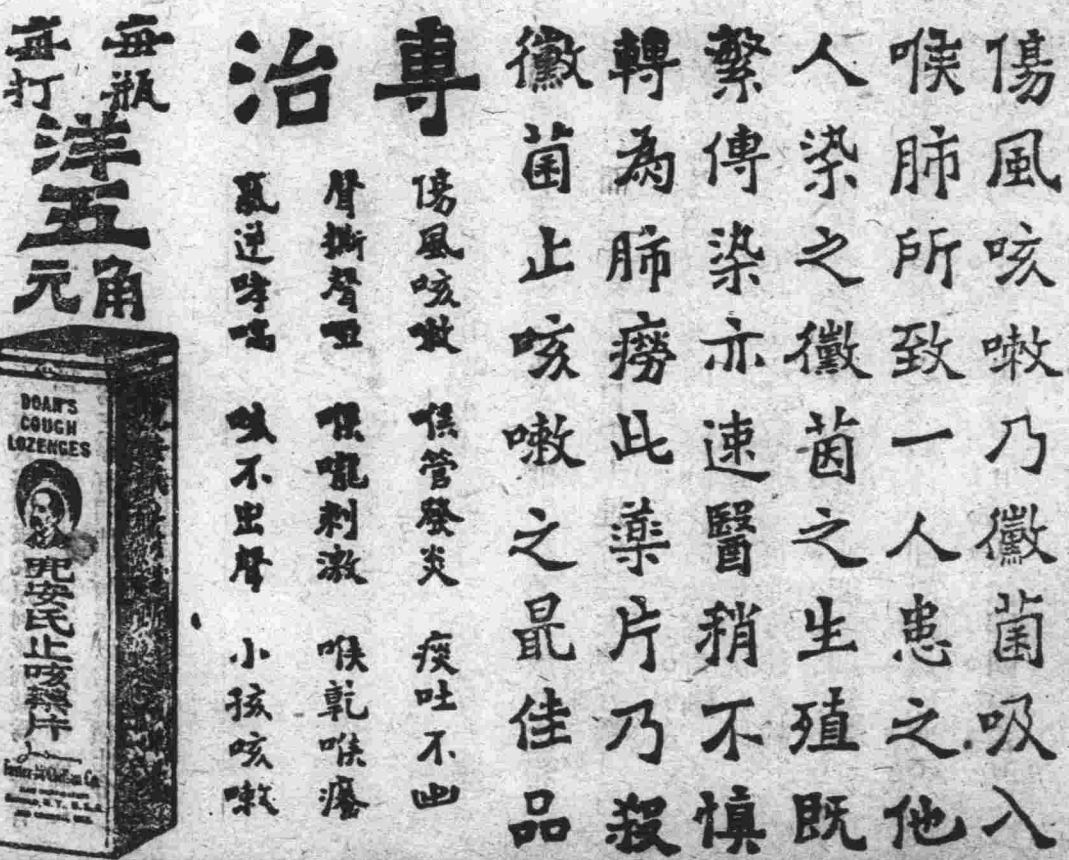 傷風咳嗽乃黴菌吸入
喉肺所致一人患之他
人染之黴菌之生殖既
繁傳染亦速醫稍不慎
轉為肺癆此藥片乃殺
黴菌止咳嗽之最佳品
專治
傷風咳嗽 喉管發炎 痰吐不出
聲撕聲啞 喉嚨刺激 喉乾喉癢
氣逆哮喘 咳不出聲 小孩咳嗽
每瓶
每打
洋五
角
元
DOAN'S
COUGH
LOZENGES
兜安氏止咳藥片
Foster-McClellan Co.